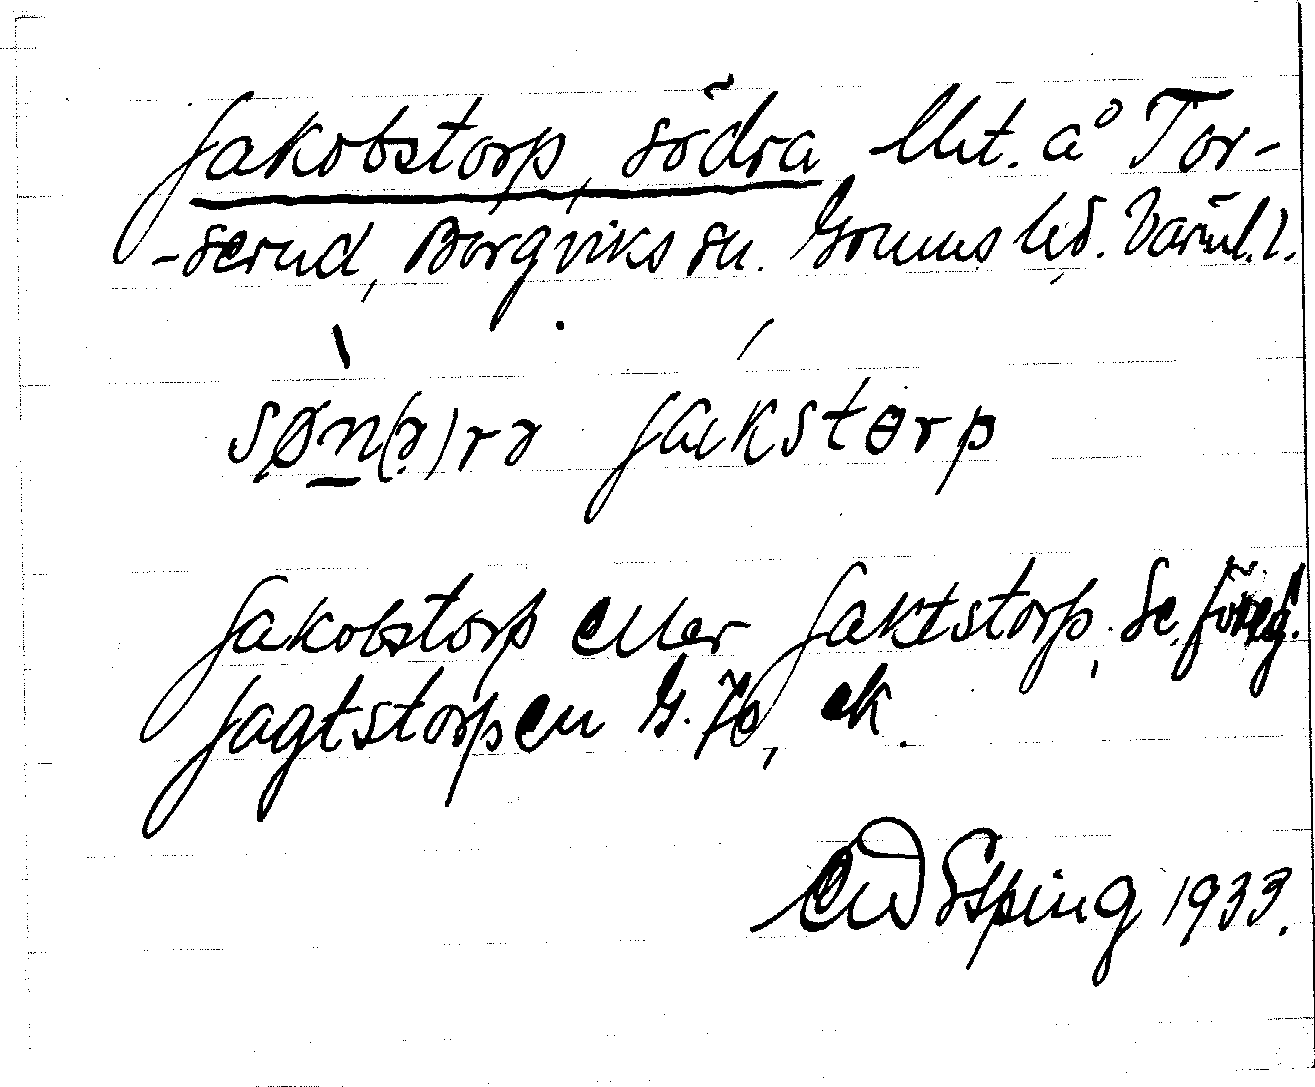 Jakobstorp, södra lht. å Tor-
-serud, Borgviks sn. Grums hd. Värml. l.
søn(ə)rə jakstorp
Jakobstorp eller Jaktstorp. Se föreg.
Jagtstorpen G. 70, ek.
Espling 1933.